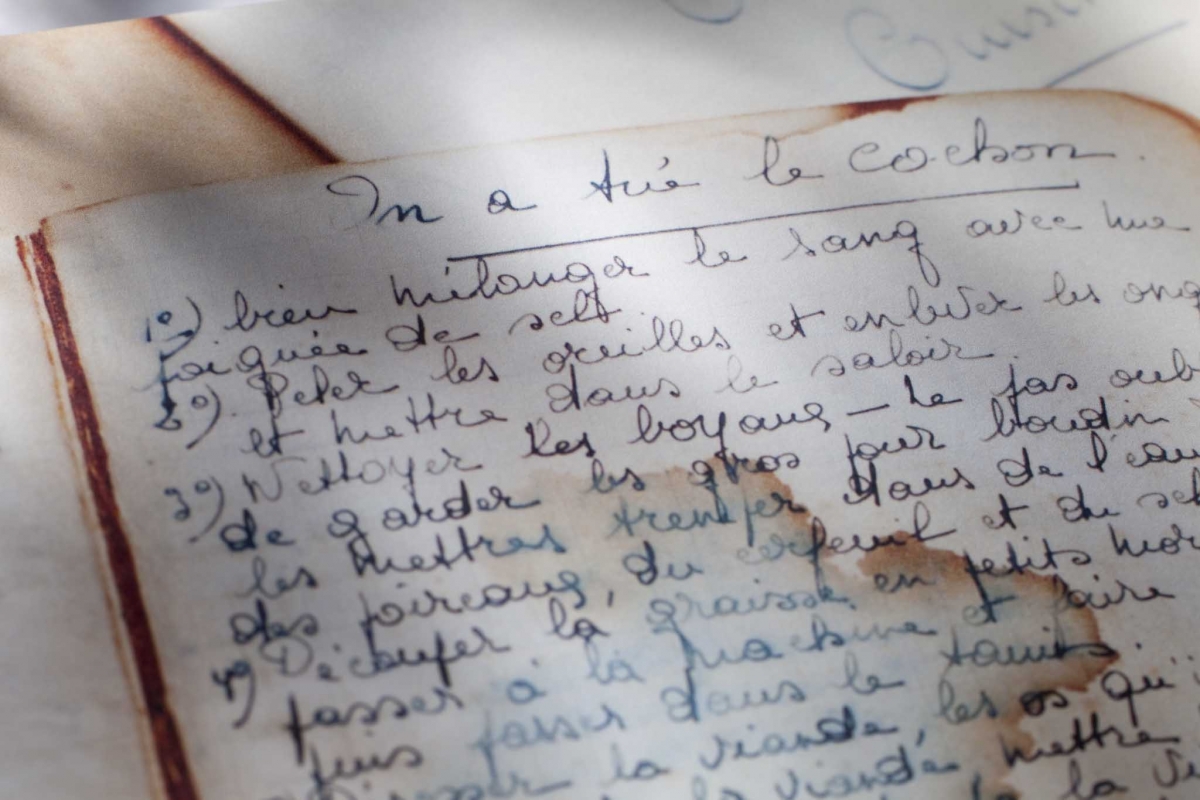 Cuisi
On a tué le cochon.
1°) bien mélanger le sang avec une
poignée de selt.
2°) Peler les oreilles et enlever les ong
et mettre dans le saloir.
3°) Nettoyer les boyaus - Ne pas oub
de garder les gros pour boudin
les mettres tremper dans de l'eau
des poireaus, du cerfeuil et du sel
4°) Découper la graisse en petits mor
passer à la machine et faire
puis passer dans le tamis.
la viande, les os qu'i
la viande, mettre
la vi